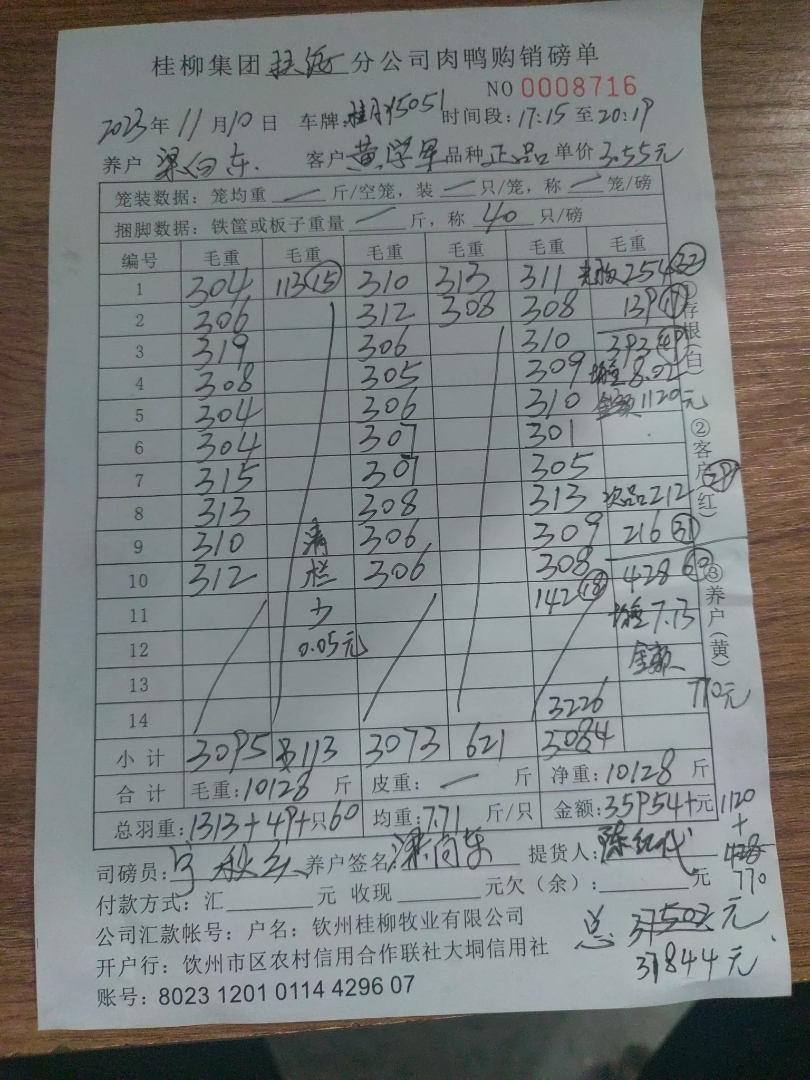 桂柳集团扶绥分公司肉鸭购销磅单
NO 0008716
2023年11月10日 车牌:桂 15051 时间段:17:15至20:19
养户 梁向东. 客户 黄学军 品种 正品 单价 3.55元
笼装数据：笼均重 — 斤/空笼，装 — 只/笼，称 — 笼/磅
捆脚数据：铁筐或板子重量 — 斤，称 40 只/磅
编号 毛重 毛重 毛重 毛重 毛重 毛重
1 304 113(15) 310 313 311 254(32)
2 306 312 308 308 139(17)
3 319 306 310 393(49)
4 308 305 309 均重8.02
5 304 306 310 金额1120元
6 304 307 301
7 315 307 305
8 313 308 313 次品212(29)
9 310 满 306 309 216(31)
10 312 栏 306 308 428(60)
11 少 142(18) 均重7.13
12 0.05元 金额
13 770元
14 3226
小计 3095 113 3073 621 3084
合计 毛重:10128斤 皮重:—斤 净重:10128斤
总羽重:1313+49+只60 均重:7.71斤/只 金额:35954+元 1120
+
428
770
司磅员: 养户签名:梁向东 提货人:陈红代
付款方式：汇 元 收现 元欠（余）: 元
公司汇款帐号：户名：钦州桂柳牧业有限公司
总 37502元
开户行：钦州市区农村信用合作联社大垌信用社
37844元
账号：8023 1201 0114 4296 07
①存根(白) ②客户(红) ③养户(黄)